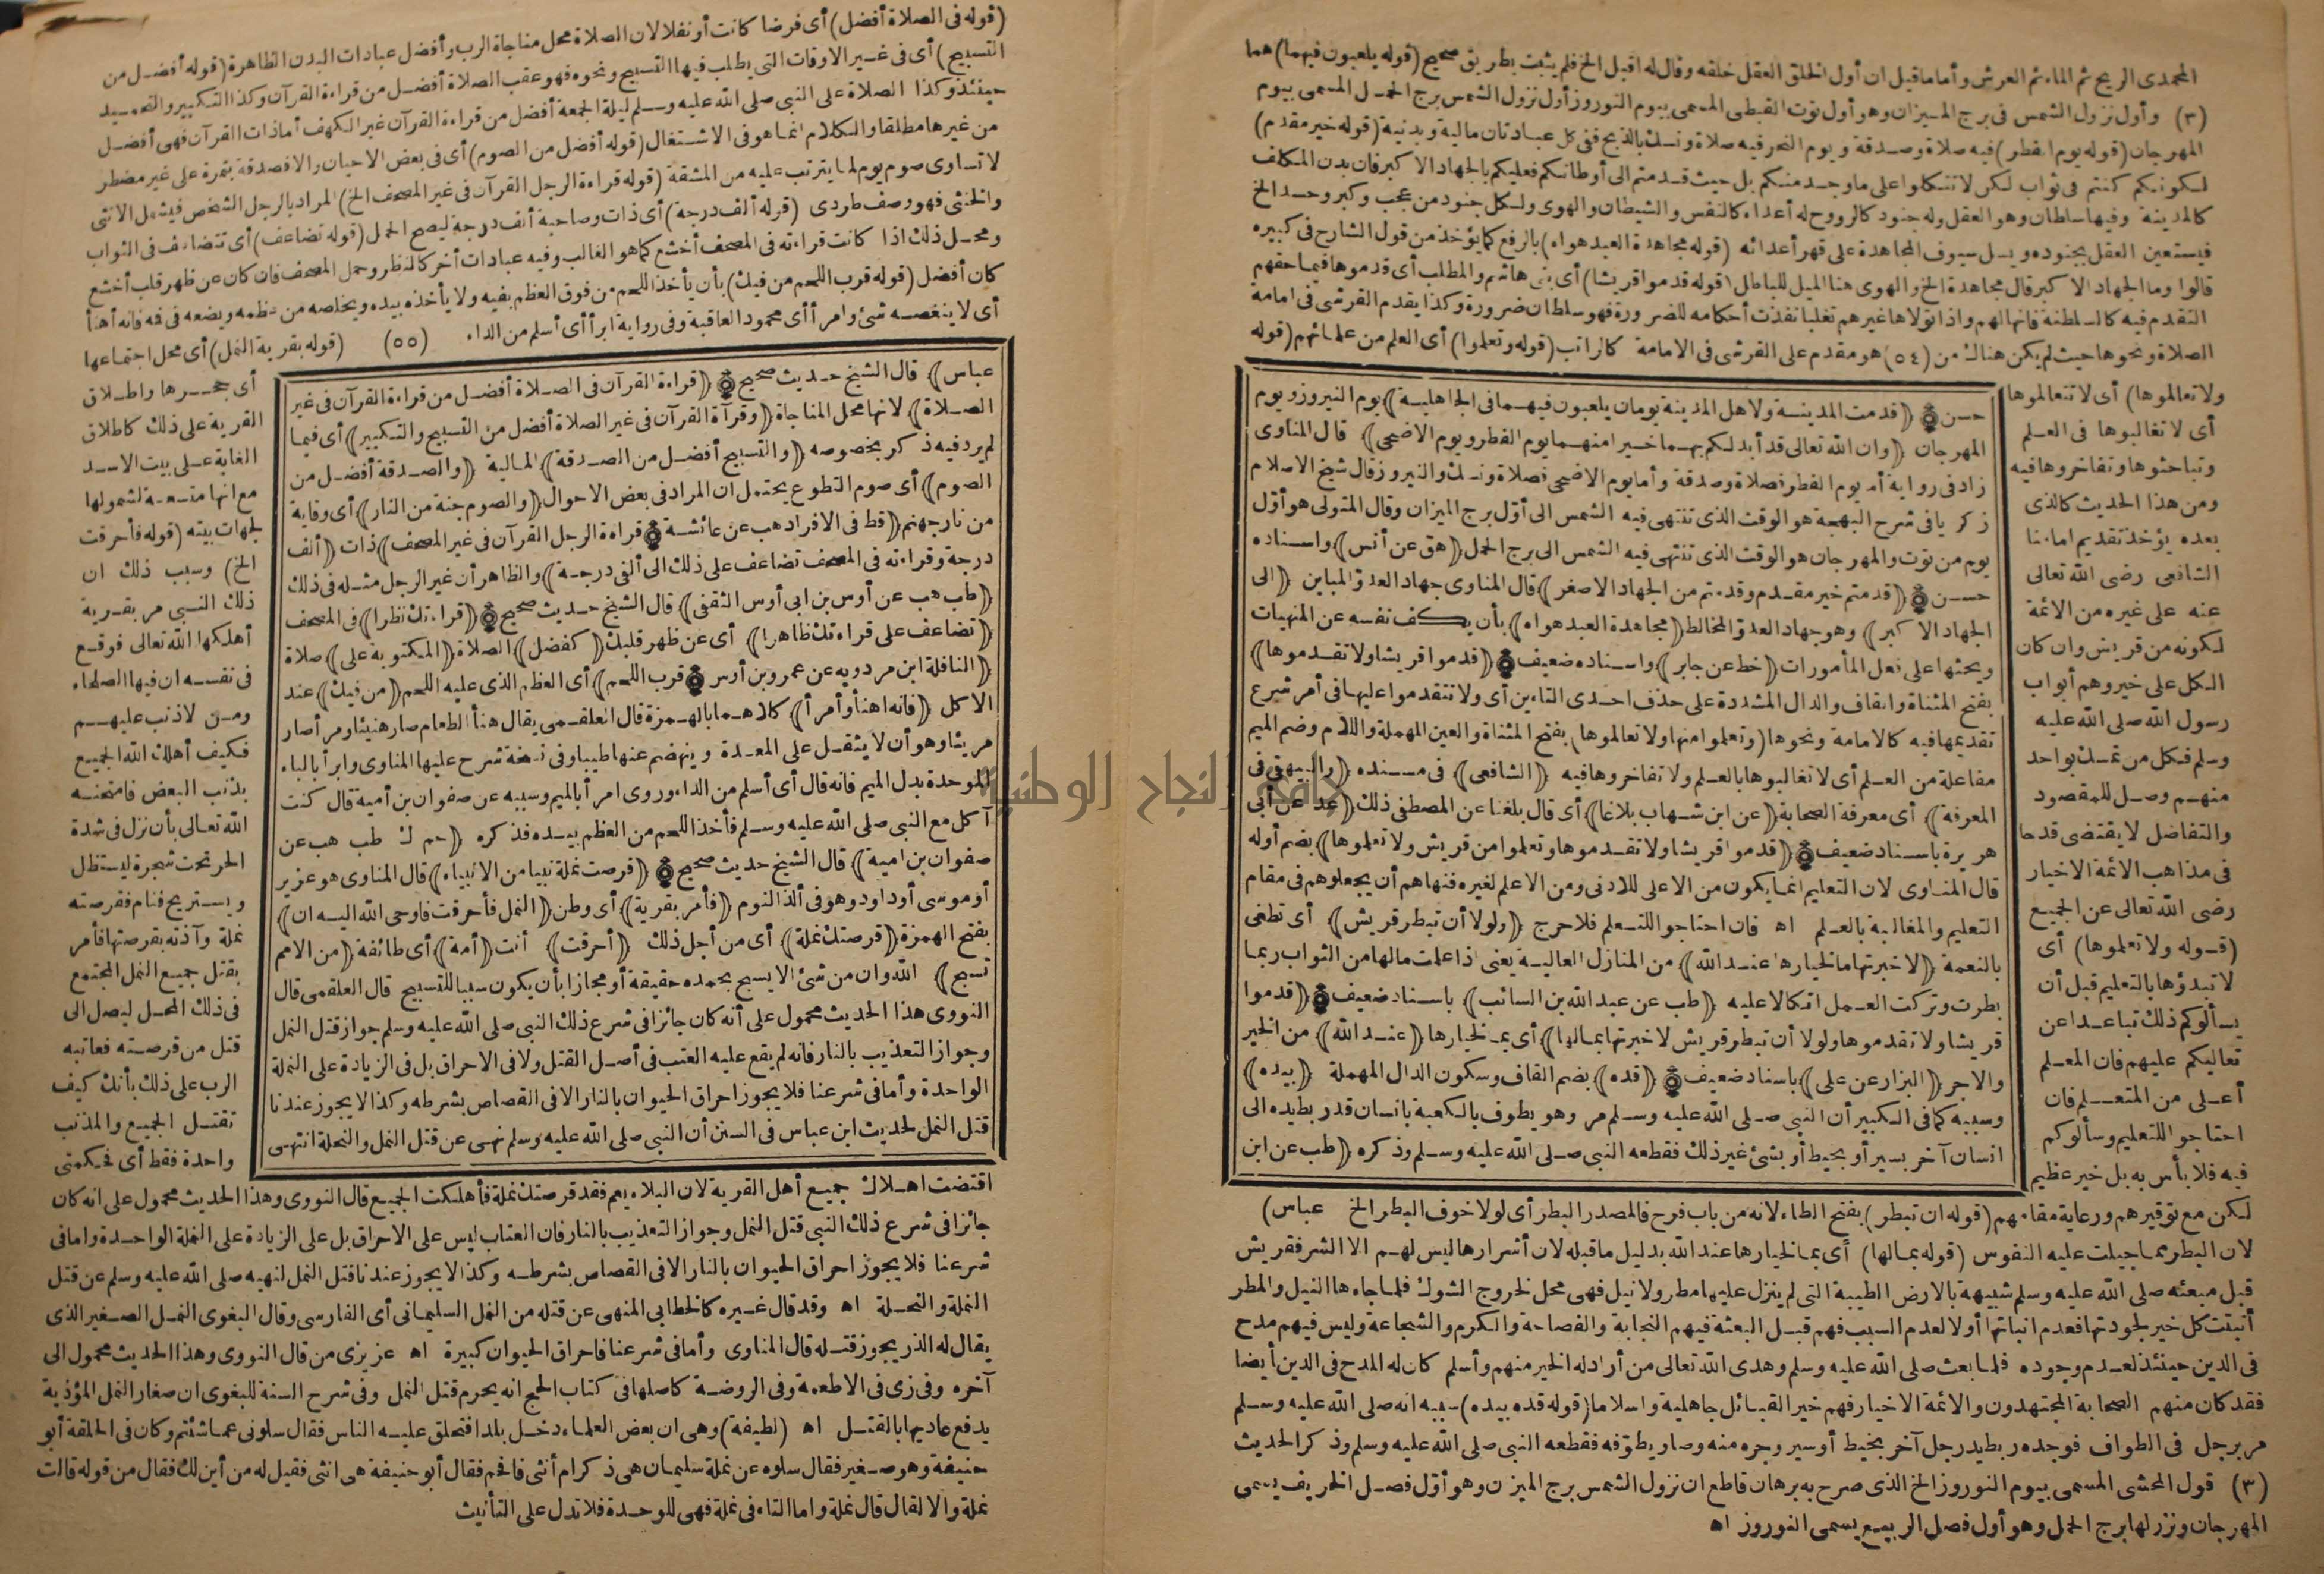 المحمدى الريح ثم الماء ثم العرش وأما ما قيل ان أول الخلق العقل خلقه وقال له اقبل الخ فلم يثبت بطريق صحيح (قوله يلعبون فيهما) هما
(٣) وأول نزول الشمس فى برج الميزان وهو أول توت القبطى المسمى بيوم النوروز أول نزول الشمس برج الحمل المسمى بيوم
المهرجان (قوله يوم الفطر) فيه صلاة وصدقة ويوم النحر فيه صلاة ونسك بالذبح ففى كل عبادتان مالية وبدنية (قوله خير مقدم)
لكونكم كنتم فى ثواب لكن لا تتكلوا على ما وجد منكم بل حيث قدمتم الى أوطانكم فعليكم بالجهاد الاكبر فان بدن المكلف
كالمدينة وفيها سلطان وهو العقل وله جنود كالروح له أعداء كالنفس والشيطان والهوى ولكل جنود من عجب وكبر وحسد الخ
فيستعين العقل بجنوده ويسل سيوف المجاهدة على قهر أعدائه (قوله مجاهدة العبد هواه) بالرفع كما يؤخذ من قول الشارح فى كبيره
قالوا وما الجهاد الاكبر قال مجاهدة الخ والهوى هنا الميل للباطل (قوله قدموا قريشا) أى بنى هاشم والمطلب أى قدموها فيما حقهم
التقدم فيه كالسلطنة فانها لهم واذا تولاها غيرهم تغلبا نفذت أحكامه للضرورة فهو سلطان ضرورة وكذا يقدم القرشى فى امامة
الصلاة ونحوها حيث لم يكن هناك من (٥٤) هو مقدم على القرشى فى الامامة كالراتب (قوله وتعلموا) أى العلم من علمائهم (قوله
ولا تعالموها) أى لا تتعالموها
أى لا تغالبوها فى العلم
وتباحثوها وتفاخروها فيه
ومن هذا الحديث كالذى
بعده يؤخذ تقديم امامنا
الشافعى رضى الله تعالى
عنه على غيره من الائمة
لكونه من قريش وان كان
الكل على خير وهم أبواب
رسول الله صلى الله عليه
وسلم فكل من تمسك بواحد
منهم وصل للمقصود
والتفاضل لا يقتضى قدحا
فى مذاهب الائمة الاخيار
رضى الله تعالى عن الجميع
(قوله ولا تعلموها) أى
لا تبدؤها بالتعليم قبل أن
يسألوكم ذلك تباعدا عن
تعاليكم عليهم فان المعلم
أعلى من المتعلم فان
احتاجوا للتعليم وسألوكم
فيه فلا بأس به بل خير عظيم
حسن ﴿قدمت المدينة ولاهل المدينة يومان يلعبون فيهما فى الجاهلية﴾ يوم النيروز ويوم
المهرجان ﴿وان الله تعالى قد أبدلكم بهما خيرا منهما يوم الفطر ويوم الاضحى﴾ قال المناوى
زاد فى رواية أما يوم الفطر فصلاة وصدقة وأما يوم الاضحى فصلاة ونسك والنيروز قال شيخ الاسلام
زكريا فى شرح البهجة هو الوقت الذى تنتهى فيه الشمس الى أول برج الميزان وقال المتولى هو أول
يوم من توت والمهرجان هو الوقت الذى تنتهى فيه الشمس الى برج الحمل ﴿هق عن أنس﴾ واسناده
حسن ﴿قدمتم خير مقدم وقدمتم من الجهاد الاصغر﴾ قال المناوى جهاد العدو المباين ﴿الى
الجهاد الاكبر﴾ وهو جهاد العدو المخالط ﴿مجاهدة العبد هواه﴾ بأن يكف نفسه عن المنهيات
ويحثها على فعل المأمورات ﴿خط عن جابر﴾ واسناده ضعيف ﴿قدموا قريشا ولا تقدموها﴾
بفتح المثناة والقاف والدال المشددة على حذف احدى التاءين أى ولا تتقدموا عليها فى أمر شرع
تقديمها فيه كالامامة ونحوها ﴿وتعلموا منها ولا تعالموها﴾ بفتح المثناة والعين المهملة واللام وضم الميم
مفاعلة من العلم أى لا تغالبوها بالعلم ولا تفاخروها فيه ﴿الشافعى﴾ فى مسنده ﴿والبيهقى فى
المعرفة﴾ أى معرفة الصحابة ﴿عن ابن شهاب بلاغا﴾ أى قال بلغنا عن المصطفى ذلك ﴿عد عن أبى
هريرة باسناد ضعيف ﴿قدموا قريشا ولا تقدموها وتعلموا من قريش ولا تعلموها﴾ بضم أوله
قال المناوى لان التعليم انما يكون من الاعلى للادنى ومن الاعلم لغيره فنهاهم أن يجعلوهم فى مقام
التعليم والمغالبة بالعلم اه فان احتاجوا للتعلم فلا حرج ﴿ولولا أن تبطر قريش﴾ أى تطغى
بالنعمة ﴿لاخبرتها ما لخيارها عند الله﴾ من المنازل العالية يعنى اذا علمت مالها من الثواب ربما
بطرت وتركت العمل اتكالا عليه ﴿طب عن عبد الله بن السائب﴾ باسناد ضعيف ﴿قدموا
قريشا ولا تقدموها ولولا أن تبطر قريش لاخبرتها بمالها﴾ أى بما لخيارها ﴿عند الله﴾ من الخير
والاجر ﴿البزار عن على﴾ باسناد ضعيف ﴿قده﴾ بضم القاف وسكون الدال المهملة ﴿بيده﴾
وسببه كما فى الكبير أن النبى صلى الله عليه وسلم مر وهو يطوف بالكعبة بانسان قد ربط يده الى
انسان آخر بسير أو بخيط أو بشئ غير ذلك فقطعه النبى صلى الله عليه وسلم وذكره ﴿طب عن ابن
لكن مع توقيرهم ورعاية مقامهم (قوله ان تبطر) بفتح الطاء لانه من باب فرح فالمصدر البطر أى لولا خوف البطر الخ عباس)
لان البطر مما جبلت عليه النفوس (قوله بمالها) أى بما لخيارها عند الله بدليل ما قبله لان أشرارها ليس لهم الا الشر فقريش
قبل مبعثه صلى الله عليه وسلم شبيهة بالارض الطيبة التى لم ينزل عليها مطر ولا نيل فهى محل لخروج الشوك فلما جاءها النيل والمطر
أنبتت كل خير لجودتها فعدم انباتها أولا لعدم السبب فهم قبل البعثة فيهم النجابة والفصاحة والكرم والشجاعة وليس فيهم مدح
فى الدين حينئذ لعدم وجوده فلما بعث صلى الله عليه وسلم وهدى الله تعالى من أراد له الخير منهم وأسلم كان له المدح فى الدين أيضا
فقد كان منهم الصحابة المجتهدون والائمة الاخيار فهم خير القبائل جاهلية واسلاما (قوله قده بيده) سببه انه صلى الله عليه وسلم
مر برجل فى الطواف فوجده ربط يد رجل آخر بخيط أو سير وجره منه وصار يطوفه فقطعه النبى صلى الله عليه وسلم وذكر الحديث
(٣) قول المحشى المسمى بيوم النوروز الخ الذى صرح به برهان قاطع ان نزول الشمس برج الميزن وهو أول فصل الخريف يسمى
المهرجان ونزولها برج الحمل وهو أول فصل الربيع يسمى النوروز اه
(قوله فى الصلاة أفضل) أى فرضا كانت أو نفلا لان الصلاة محل مناجاة الرب وأفضل عبادات البدن الظاهرة (قوله أفضل من
التسبيح) أى فى غير الاوقات التى يطلب فيها التسبيح ونحوه فهو عقب الصلاة أفضل من قراءة القرآن وكذا التكبير والتحميد
حينئذ وكذا الصلاة على النبى صلى الله عليه وسلم ليلة الجمعة أفضل من قراءة القرآن غير الكهف أما ذات القرآن فهى أفضل
من غيرها مطلقا والكلام انما هو فى الاشتغال (قوله أفضل من الصوم) أى فى بعض الاحيان والا فصدقة بتمرة على غير مضطر
لا تساوى صوم يوم لما يترتب عليه من المشقة (قوله قراءة الرجل القرآن فى غير المصحف الخ) المراد بالرجل الشخص فيشمل الانثى
والخنثى فهو وصف طردى (قوله ألف درجة) أى ذات وصاحبة ألف درجة ليصح الحمل (قوله تضاعف) أى تتضاعف فى الثواب
ومحل ذلك اذا كانت قراءته فى المصحف أخشع كما هو الغالب وفيه عبادات أخر كالنظر وحمل المصحف فان كان عن ظهر قلب أخشع
كان أفضل (قوله قرب اللحم من فيك) بأن يأخذ اللحم من فوق العظم بفيه ولا يأخذه بيده ويخلصه من عظمه ويضعه فى فه فانه أهنأ
أى لا ينغصه شئ وامرأ أى محمود العاقبة وفى رواية ابرأ أى أسلم من الداء (٥٥) (قوله بقرية النمل) أى محل اجتماعها
أى جحرها واطلاق
القرية على ذلك كاطلاق
الغابة على بيت الاسد
مع انها متسعة لشمولها
لجهات بيته (قوله فأحرقت
الخ) وسبب ذلك ان
ذلك النبى مر بقرية
أهلكها الله تعالى فوقع
فى نفسه ان فيها الصلحاء
ومن لا ذنب عليهم
فكيف أهلك الله الجميع
بذنب البعض فامتحنه
الله تعالى بأن نزل فى شدة
الحر تحت شجرة ليستظل
ويستريح فنام فقرصته
نملة وآذته بقرصتها فأمر
بقتل جميع النمل المجتمع
فى ذلك المحل ليصل الى
قتل من قرصته فعاتبه
الرب على ذلك بأنك كيف
تقتل الجميع والمذنب
واحدة فقط أى فحكمتى
عباس﴾ قال الشيخ حديث صحيح ﴿قراءة القرآن فى الصلاة أفضل من قراءة القرآن فى غير
الصلاة﴾ لانها محل المناجاة ﴿وقرآة القرآن فى غير الصلاة أفضل من التسبيح والتكبير﴾ أى فيما
لم يرد فيه ذكر بخصوصه ﴿والتسبيح أفضل من الصدقة﴾ المالية ﴿والصدقة أفضل من
الصوم﴾ أى صوم التطوع يحتمل ان المراد فى بعض الاحوال ﴿والصوم جنة من النار﴾ أى وقاية
من نار جهنم ﴿قط فى الافراد هب عن عائشة ﴿قراءة الرجل القرآن فى غير المصحف﴾ ذات ﴿ألف
درجة وقراءته فى المصحف تضاعف على ذلك الى ألفى درجة﴾ والظاهر أن غير الرجل مثله فى ذلك
﴿طب هب عن أوس بن ابى أوس الثقفى﴾ قال الشيخ حديث صحيح ﴿قراءتك نظرا﴾ فى المصحف
﴿تضاعف على قراءتك ظاهرا﴾ أى عن ظهر قلبك ﴿كفضل﴾ الصلاة ﴿المكتوبة على﴾ صلاة
﴿النافلة ابن مردويه عن عمرو بن أوس ﴿قرب اللحم﴾ أى العظم الذى عليه اللحم ﴿من فيك﴾ عند
الاكل ﴿فانه اهنأ وأمرأ﴾ كلاهما بالهمزة قال العلقمى يقال هنأ الطعام صار هنيئا ومرأ صار
مريئا وهو أن لا يثقل على المعدة وينهضم عنها طيبا وفى نسخة شرح عليها المناوى وابرأ بالباء
الموحدة بدل الميم فانه قال أى أسلم من الداء وروى امرأ بالميم وسببه عن صفوان بن أمية قال كنت
آكل مع النبى صلى الله عليه وسلم فأخذ اللحم من العظم بيده فذكره ﴿حم ك طب هب عن
صفوان بن امية﴾ قال الشيخ حديث صحيح ﴿قرصت نملة نبيا من الانبياء﴾ قال المناوى هو عزير
أو موسى أو داود وهو فى ألذ النوم ﴿فأمر بقرية﴾ أى وطن ﴿النمل فأحرقت فاوحى الله اليه ان﴾
بفتح الهمزة ﴿قرصتك نملة﴾ أى من أجل ذلك ﴿أحرقت﴾ أنت ﴿أمة﴾ أى طائفة ﴿من الامم
تسبح﴾ الله وان من شئ الا يسبح بحمده حقيقة أو مجازا بأن يكون سببا للتسبيح قال العلقمى قال
النووى هذا الحديث محمول على أنه كان جائزا فى شرع ذلك النبى صلى الله عليه وسلم جواز قتل النمل
وجواز التعذيب بالنار فانه لم يقع عليه العتب فى أصل القتل ولا فى الاحراق بل فى الزيادة على النملة
الواحدة وأما فى شرعنا فلا يجوز احراق الحيوان بالنار الا فى القصاص بشرطه وكذا لا يجوز عندنا
قتل النمل لحديث ابن عباس فى السنن أن النبى صلى الله عليه وسلم نهى عن قتل النمل والنحلة انتهى
اقتضت اهلاك جميع أهل القرية لان البلاء يعم فقد قرصتك نملة فأهلكت الجميع قال النووى وهذا الحديث محمول على انه كان
جائزا فى شرع ذلك النبى قتل النمل وجواز التعذيب بالنار فان العتاب ليس على الاحراق بل على الزيادة على النملة الواحدة واما فى
شرعنا فلا يجوز احراق الحيوان بالنار الا فى القصاص بشرطه وكذا لا يجوز عندنا قتل النمل لنهيه صلى الله عليه وسلم عن قتل
النملة والنحلة اه وقد قال غيره كالخطابى المنهى عن قتله من النمل السليمانى أى الفارسى وقال البغوى النمل الصغير الذى
يقال له الذر يجوز قتله قال المناوى وأما فى شرعنا فاحراق الحيوان كبيرة اه عزيزى من قال النووى وهذا الحديث محمول الى
آخره وفى زى فى الاطعمة وفى الروضة كاصلها فى كتاب الحج انه يحرم قتل النمل وفى شرح السنة للبغوى ان صغار النمل المؤذية
يدفع عاديها بالقتل اه (لطيفة) وهى ان بعض العلماء دخل بلدا فتحلق عليه الناس فقال سلونى عما شئتم وكان فى الحلقة أبو
حنيفة وهو صغير فقال سلوه عن نملة سليمان هى ذكر ام أنثى فافحم فقال أبو حنيفة هى انثى فقيل له من أين لك فقال من قوله قالت
نملة والا لقال قال نملة واما التاء فى نملة فهى للوحدة فلا تدل على التأنيث
جامعة النجاح الوطنية